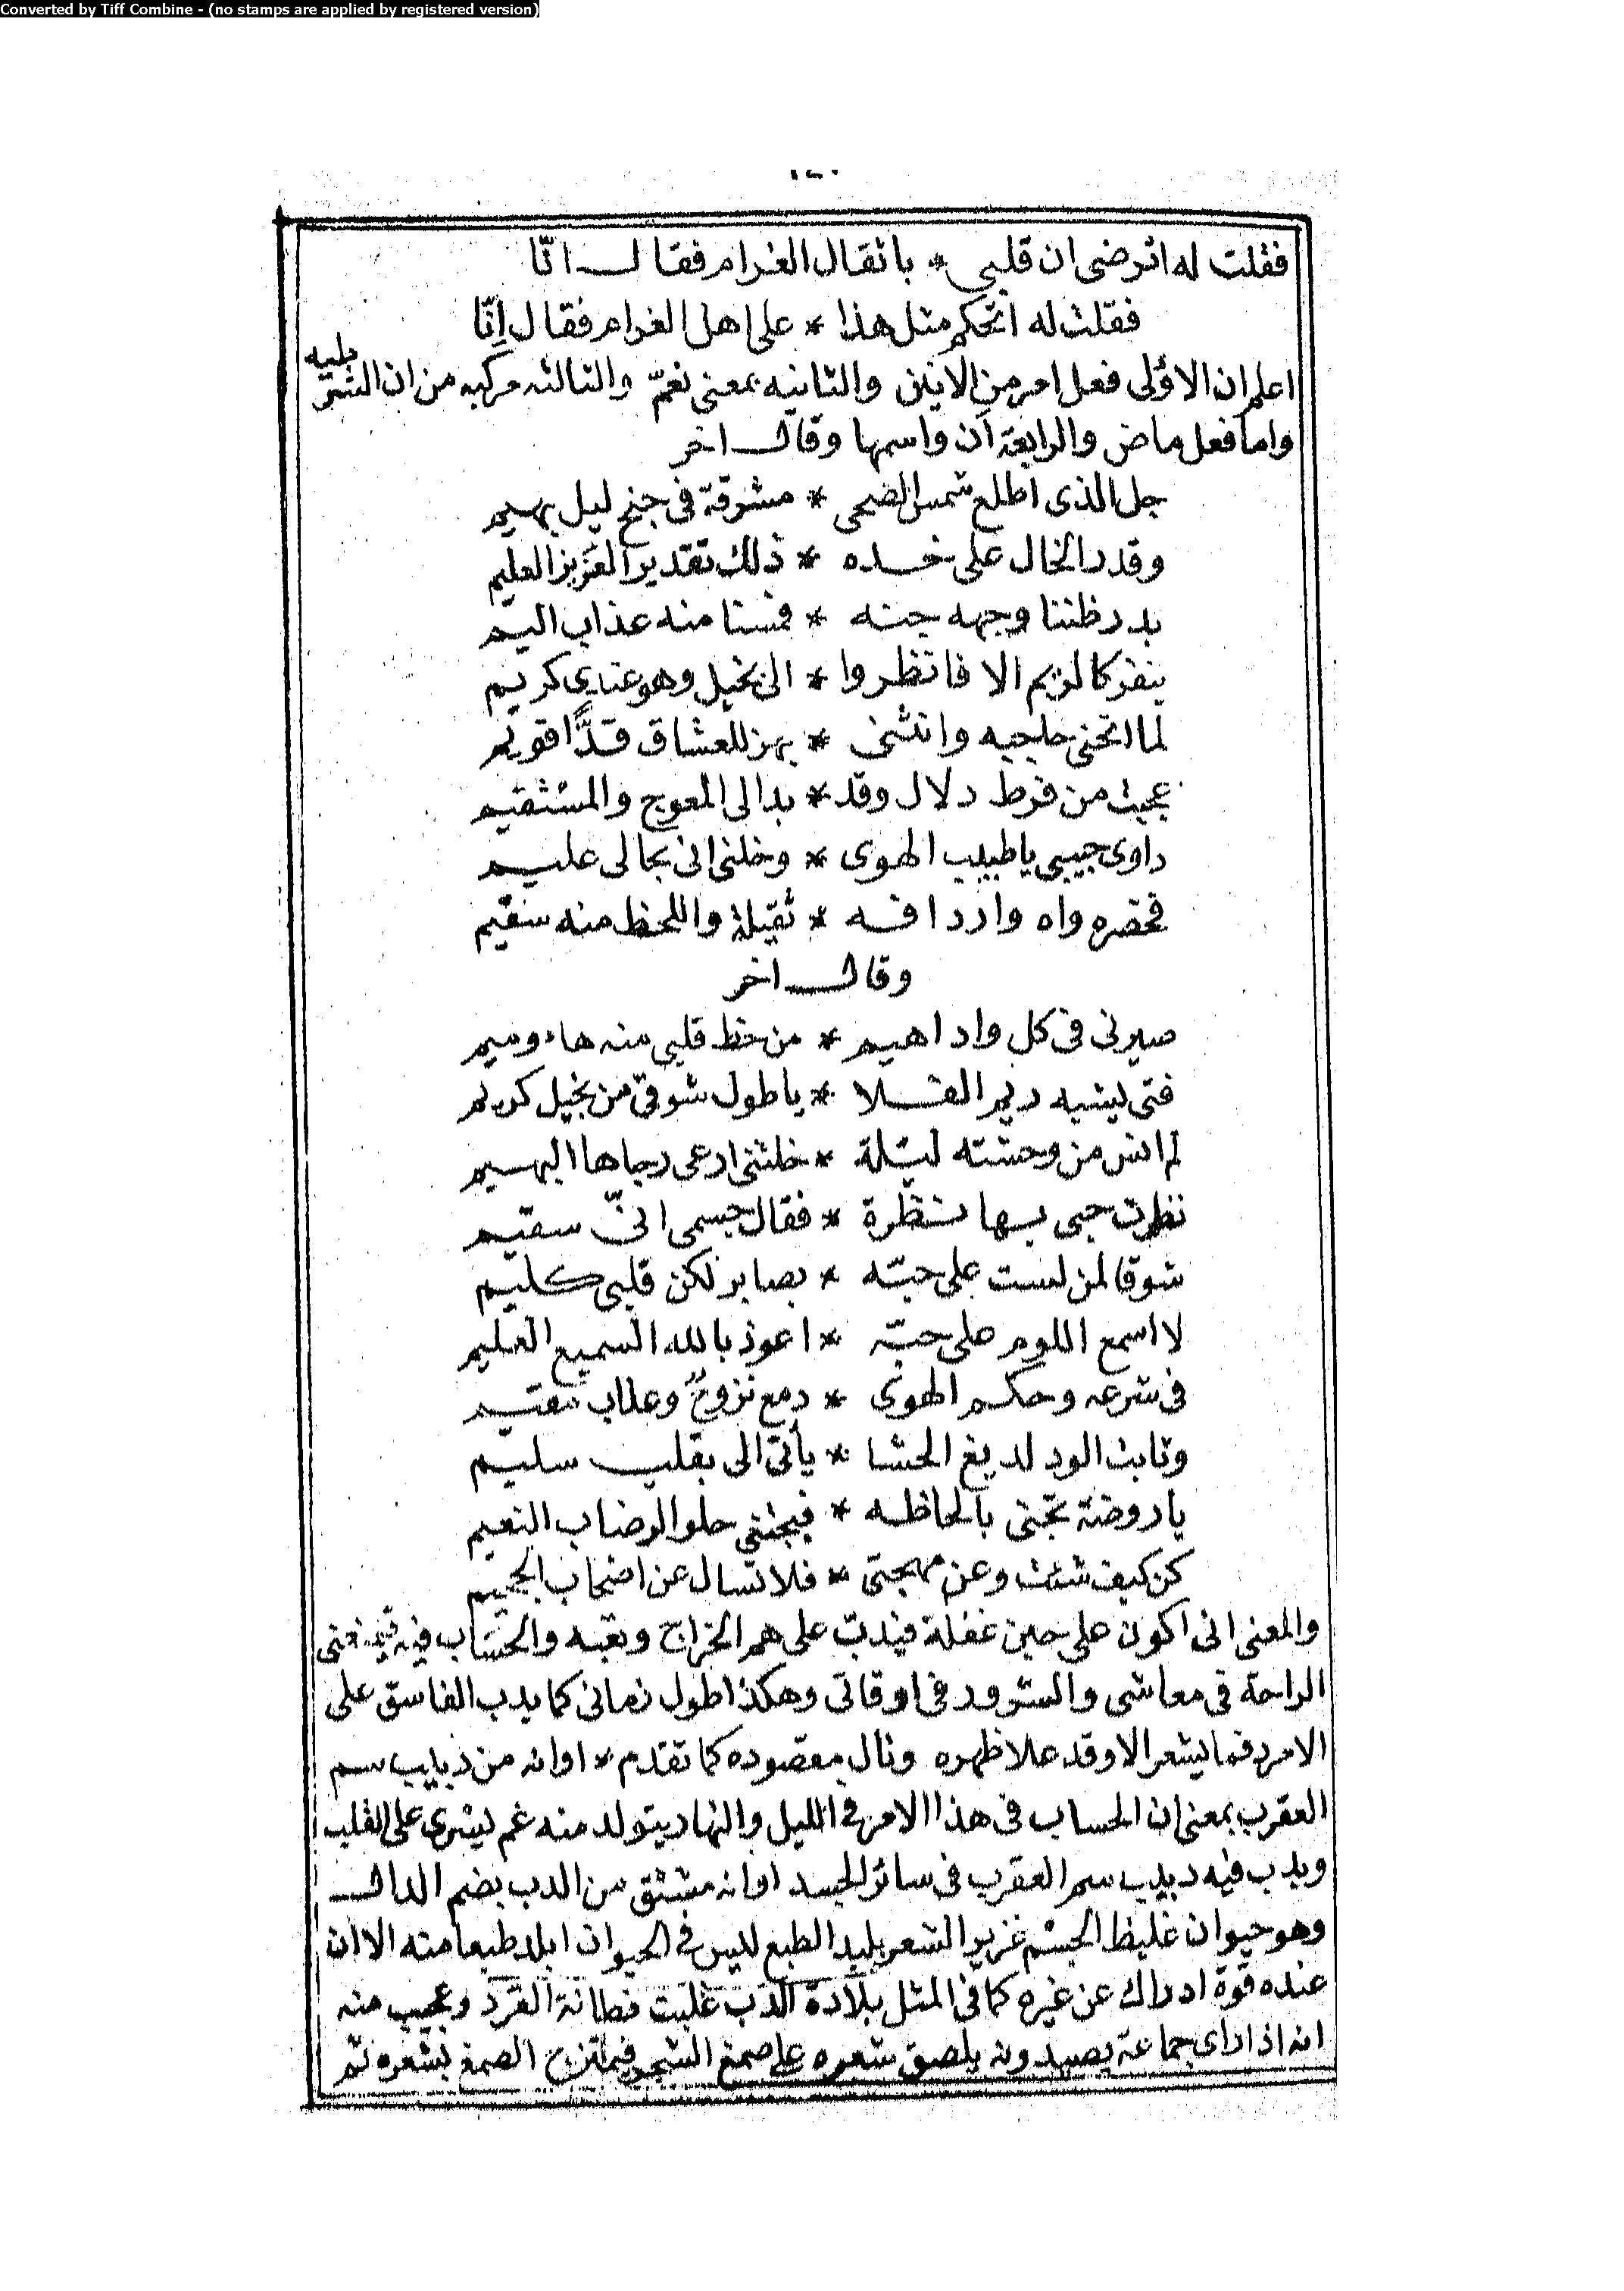 Converted by Tiff Combine - (no stamps are applied by registered version)
١٤٠
فقلت له اترضى ان قلبى * باثقال الغرام فقال انّا
فقلت له اتحكم مثل هذا * على اهل الغرام فقال إنّا
اعلم ان الاولى فعل امر من الانين والثانيه بمعنى نعم والثالثه مركبه من ان الشرطيه
واما فعل ماض والرابعة أن واسمها وقال اخر
جل الذى اطلع شمس الضحى * مشرقة فى جنح ليل بهيم
وقدر الخال على خده * ذلك تقدير العزيز العليم
بدر ظننا وجهه جنه * فمسنا منه عذاب اليم
ينفر كالريم الا فانظروا * الى بخيل وهو عندى كريم
لما انحنى حاجبه وانثنى * يهز للعشاق قدًّا قويم
عجبت من فرط دلال وقد * بدا لى المعوج والمستقيم
داوى حبيبى يا طبيب الهوى * وخلنى انى بحالى عليم
فخصره واه واردافه * ثقيلة واللحظ منه سقيم
وقال اخر
صيرنى فى كل واد اهيم * من حظ قلبى منه هاء وميم
فتى يشبه ريم الفلا * يا طول شوقى من بخيل كريم
لم انس من وحشته ليلة * خلتنى ارعى دجاها البهيم
نظرت حبى بها نظرة * فقال جسمى انّى سقيم
شوقا لمن لست على حبّه * بصابر لكن قلبى كليم
لا اسمع اللوم على حبّه * اعوذ بالله السميع العليم
فى شرعه وحكم الهوى * دمع نزوح وعذاب مقيم
وثابت الود لديغ الحشا * يأتى الى بقلب سليم
يا روضة تجنى بالحاظه * فيجتنى حلو الرضاب النعيم
كن كيف شئت وعن مهجتى * فلا تسال عن اصحاب الجحيم
والمعنى انى اكون على حين غفلة فيدب على هم الخراج وتعبه والحساب فيه فيمنعنى
الراحة فى معاشى والسرور فى اوقاتى وهكذا طول زمانى كما يدب الفاسق على
الامرد فما يشعر الا وقد علا ظهره ونال مقصوده كما تقدم * او انه من دبيب سم
العقرب بمعنى ان الحساب فى هذا الامر فى الليل والنهار يتولد منه غم يسرى على القلب
ويدب فيه دبيب سم العقرب فى سائر الجسد او انه مشتق من الدب بضم الدال
وهو حيوان غليظ الجسم غزير الشعر بليد الطبع ليس فى الحيوان ابلد طبعا منه الا ان
عنده قوة ادراك عن غيره كما فى المثل بلادة الدب غلبت فطانة القرد وعجيب منه
انه اذا راى جماعة يصيدونه يلصق شعره على صمغ الشجر فيمتزج الصمغ بشعره ثم